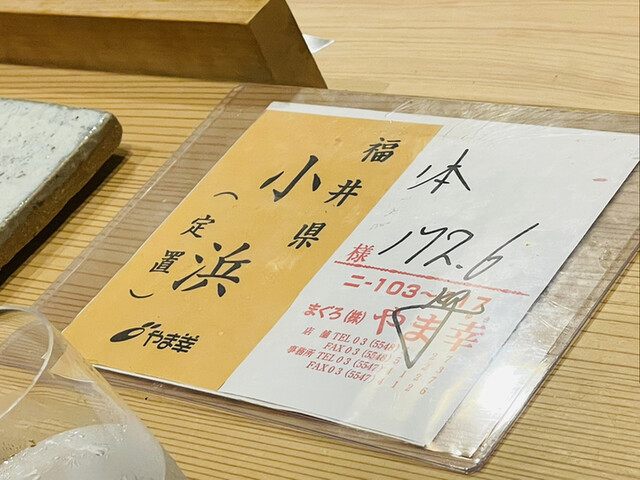 福井県
小浜
(定置)
やま幸
本
172.6
様
ニ-103~
まぐろ(株) やま幸
店舗 TEL 03 (5548)
FAX 03 (5546)
事務所 TEL 03 (5547)
FAX 03 (5547)